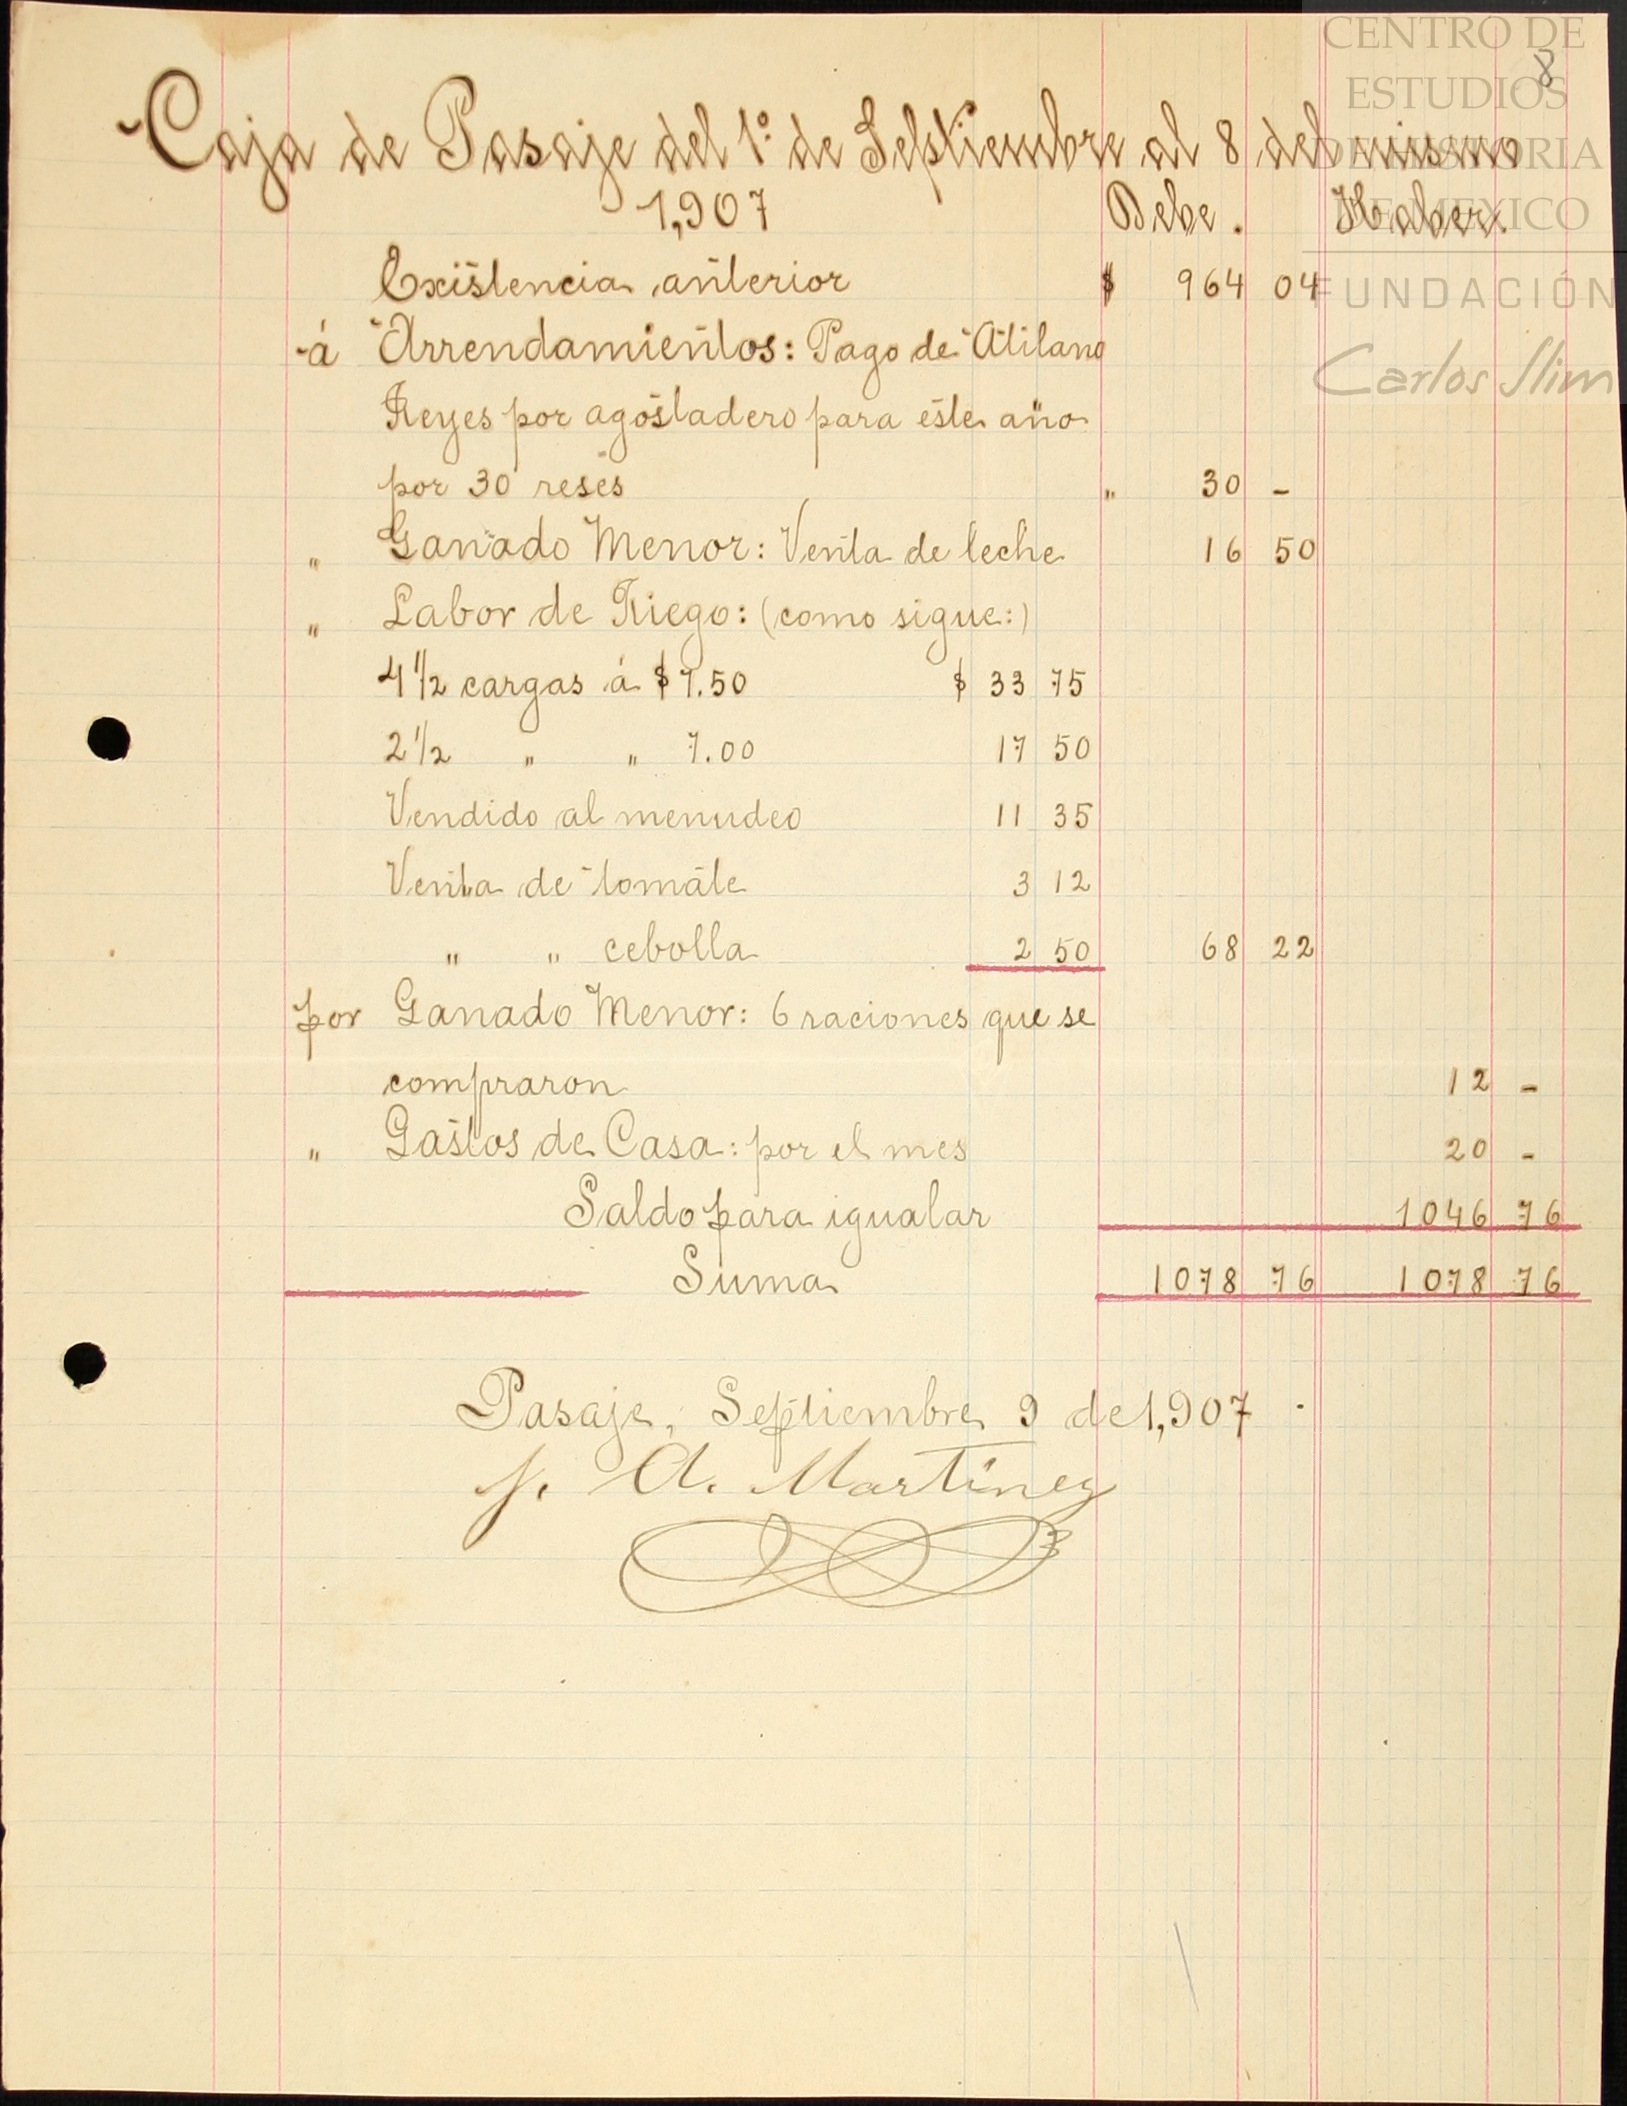 CENTRO DE
ESTUDIOS
DE HISTORIA
DE MEXICO
FUNDACIÓN
Carlos Slim
8
Caja de Pasaje del 1º de Septiembre al 8 del mismo
1,907 Debe. Haber.
Existencia anterior $ 964 04
á Arrendamientos: Pago de Atilano
Reyes por agostadero para este año
por 30 reses " 30 -
" Ganado Menor: Venta de leche 16 50
" Labor de Riego: (como sigue:)
4 1/2 cargas á $ 7.50 $ 33 75
2 1/2 " " 7.00 17 50
Vendido al menudeo 11 35
Venta de tomate 3 12
" " cebolla 2 50 68 22
por Ganado Menor: 6 raciones que se
compraron 12 -
" Gastos de Casa: por el mes 20 -
Saldo para igualar 1046 76
Suma 1078 76 1078 76
Pasaje, Septiembre 9 de 1,907.
A. Martínez